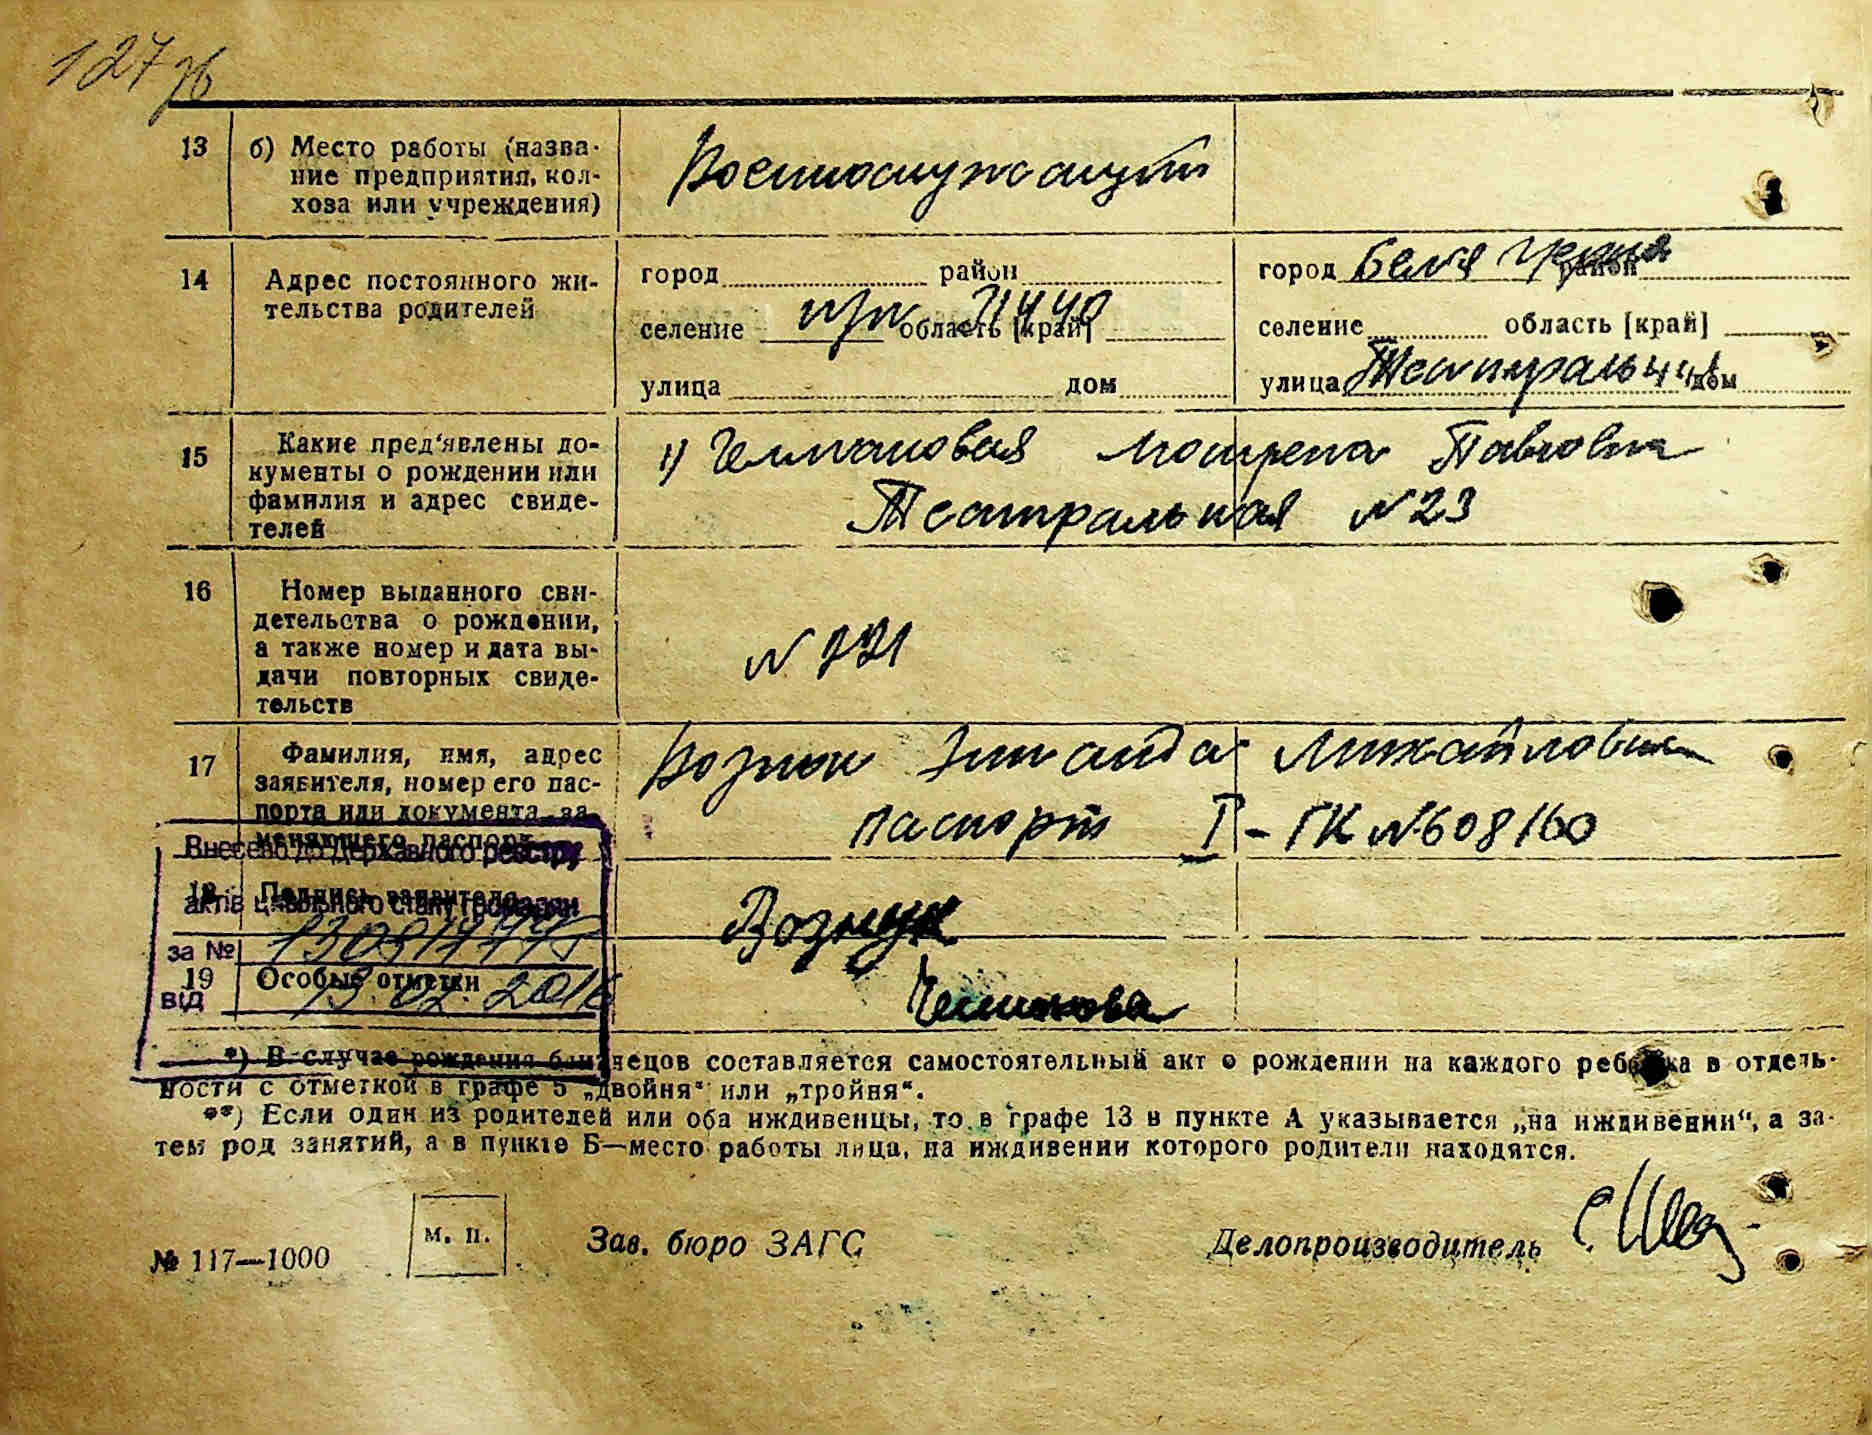 127 зв
13 б) Место работы (назва-
ние предприятия, кол-
хоза или учреждения)
Военнослужащий
14 Адрес постоянного жи-
тельства родителей
город район
селение п/п 21440 область [край]
улица дом
город Белая Церковь район
селение область [край]
улица Театральная дом
15 Какие пред'явлены до-
кументы о рождении или
фамилия и адрес свиде-
телей
1) Матрена Павловна
Театральная N 23
16 Номер выданного сви-
детельства о рождении,
а также номер и дата вы-
дачи повторных свиде-
тельств
N 221
17 Фамилия, имя, адрес
заявителя, номер его пас-
порта или документа, за-
меняющего паспорт
Вознюк Зинаида Михайловна
паспорт I - ГК N 608160
Внесено до Державного реєстру
18 Подпись заявителя
актів цивільного стану громадян
Вознюк
за №
19 Особые отметки
від 13.02.2016
*) В случае рождения близнецов составляется самостоятельный акт о рождении на каждого ребенка в отдель-
ности с отметкой в графе 5 „двойня“ или „тройня“.
**) Если один из родителей или оба иждивенцы, то в графе 13 в пункте А указывается „на иждивении“, а за-
тем род занятий, а в пункте Б—место работы лица, на иждивении которого родители находятся.
№ 117—1000
М. П.
Зав. бюро ЗАГС
Делопроизводитель